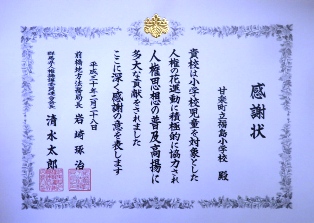 感謝状
甘楽町立福島小学校 殿
貴校は小学校児童を対象とした
人権の花運動に積極的に協力され
人権思想の普及高揚に
多大な貢献をされました
ここに深く感謝の意を表します
平成三十年二月二十八日
前橋地方法務局長 岩崎琢治
群馬県人権擁護委員連合会長
清水太郎